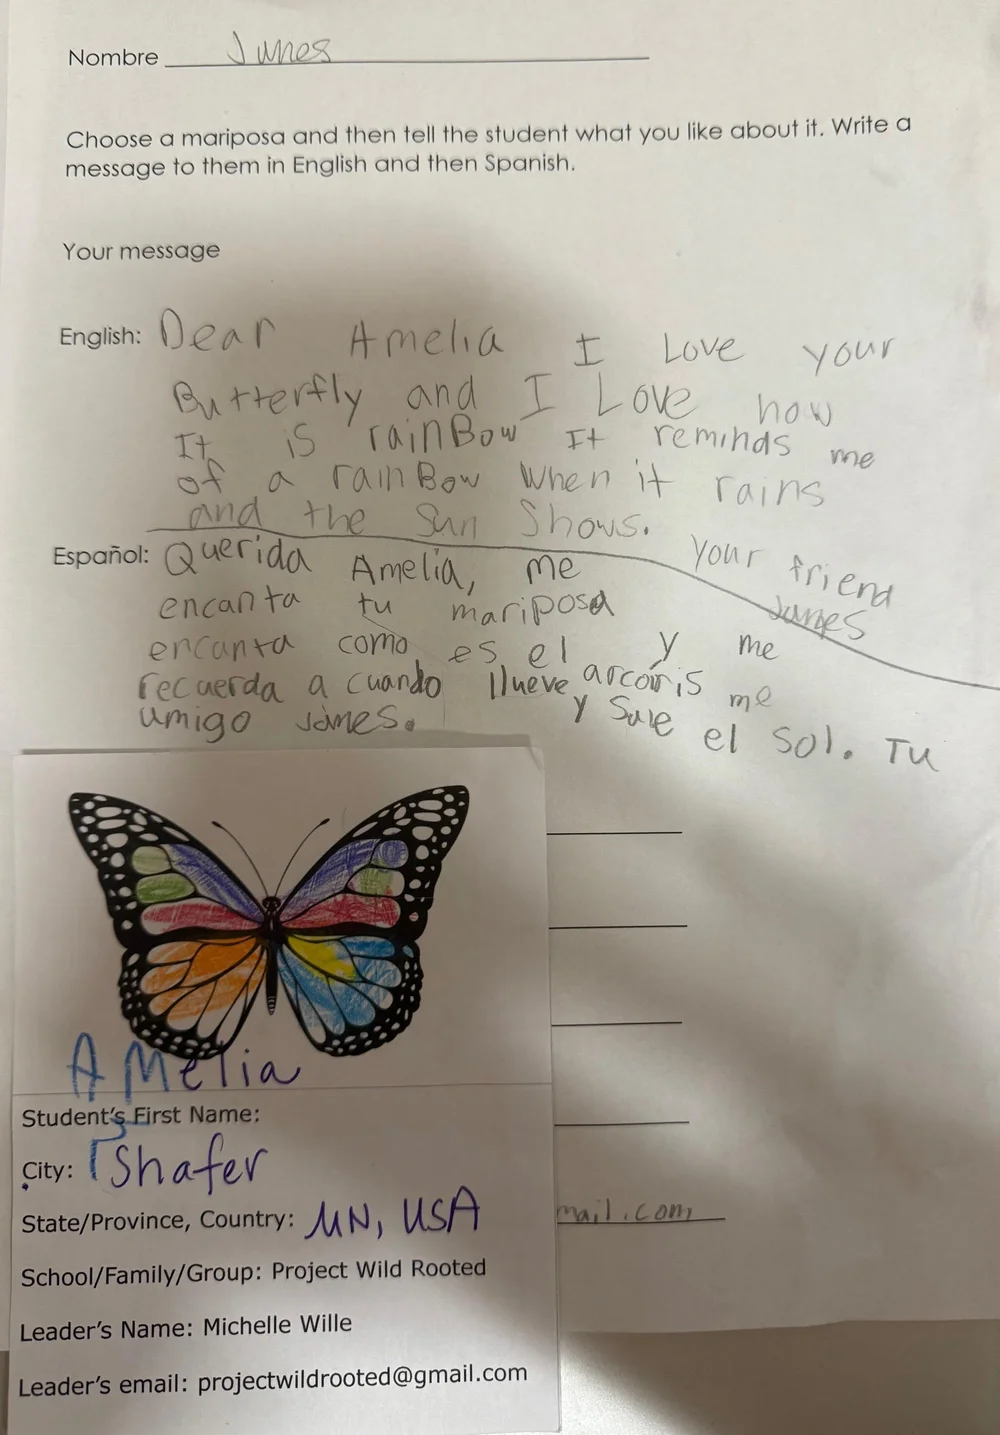 Nombre James
Choose a mariposa and then tell the student what you like about it. Write a
message to them in English and then Spanish.
Your message
English: Dear Amelia I Love your
Butterfly and I Love how
It is rainBow It reminds me
of a rainBow when it rains
and the Sun Shows.
your friend
James
Español: Querida Amelia, me
encanta tu mariposa
encanta como es el y me
recuerda a cuando llueve arcoiris me
y Sale el sol. Tu
amigo James.
AMelia
Student's First Name:
City: Shafer
State/Province, Country: MN, USA
School/Family/Group: Project Wild Rooted
Leader's Name: Michelle Wille
Leader's email: projectwildrooted@gmail.com
mail.com